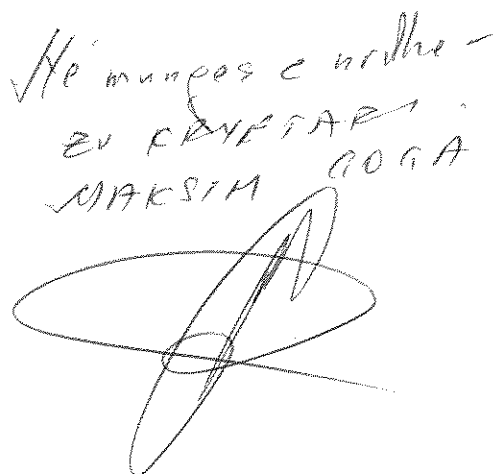 Në mungesë e urdhë-
ZV KRYETARI
MAKSIM GOGA